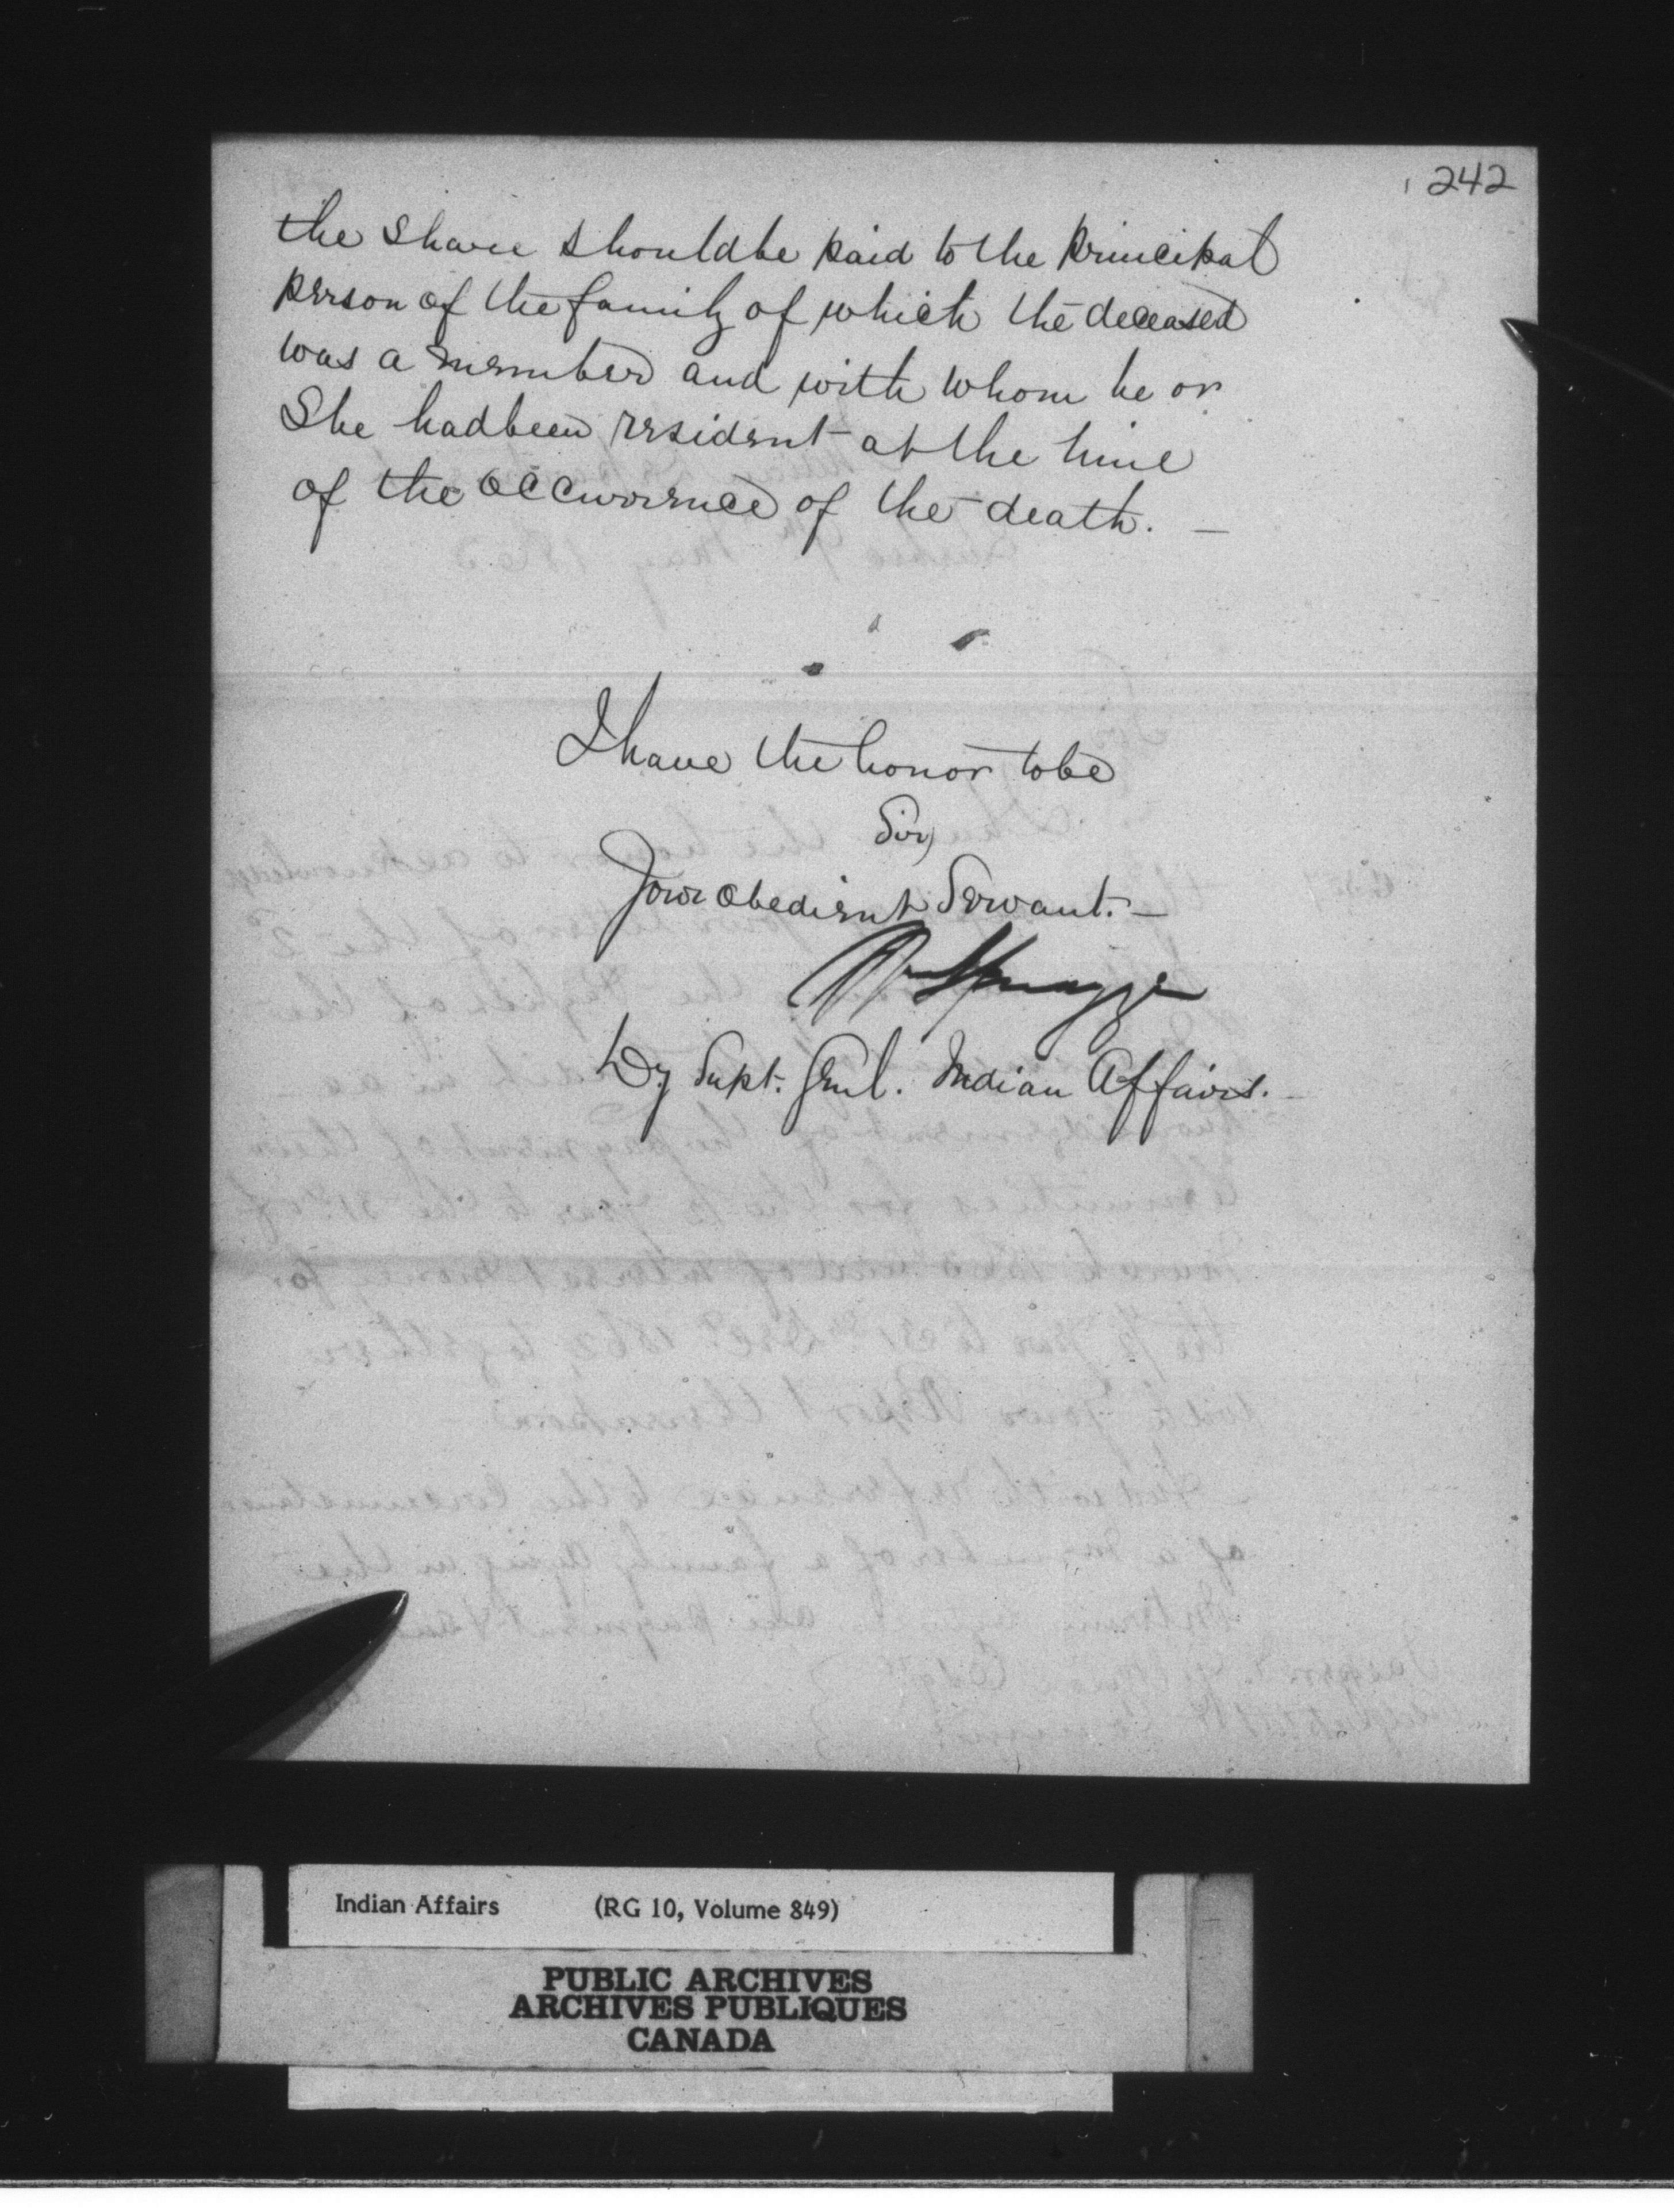 242
the share should be paid to the principal
person of the family of which the deceased
was a member and with whom he or
She had been resident at the time
of the occurrence of the death. —
I have the honor to be
Sir,
Your obedient Servant. —
Spragge
Dy Supt. Genl. Indian Affairs. —
Indian Affairs (RG 10, Volume 849)
PUBLIC ARCHIVES
ARCHIVES PUBLIQUES
CANADA